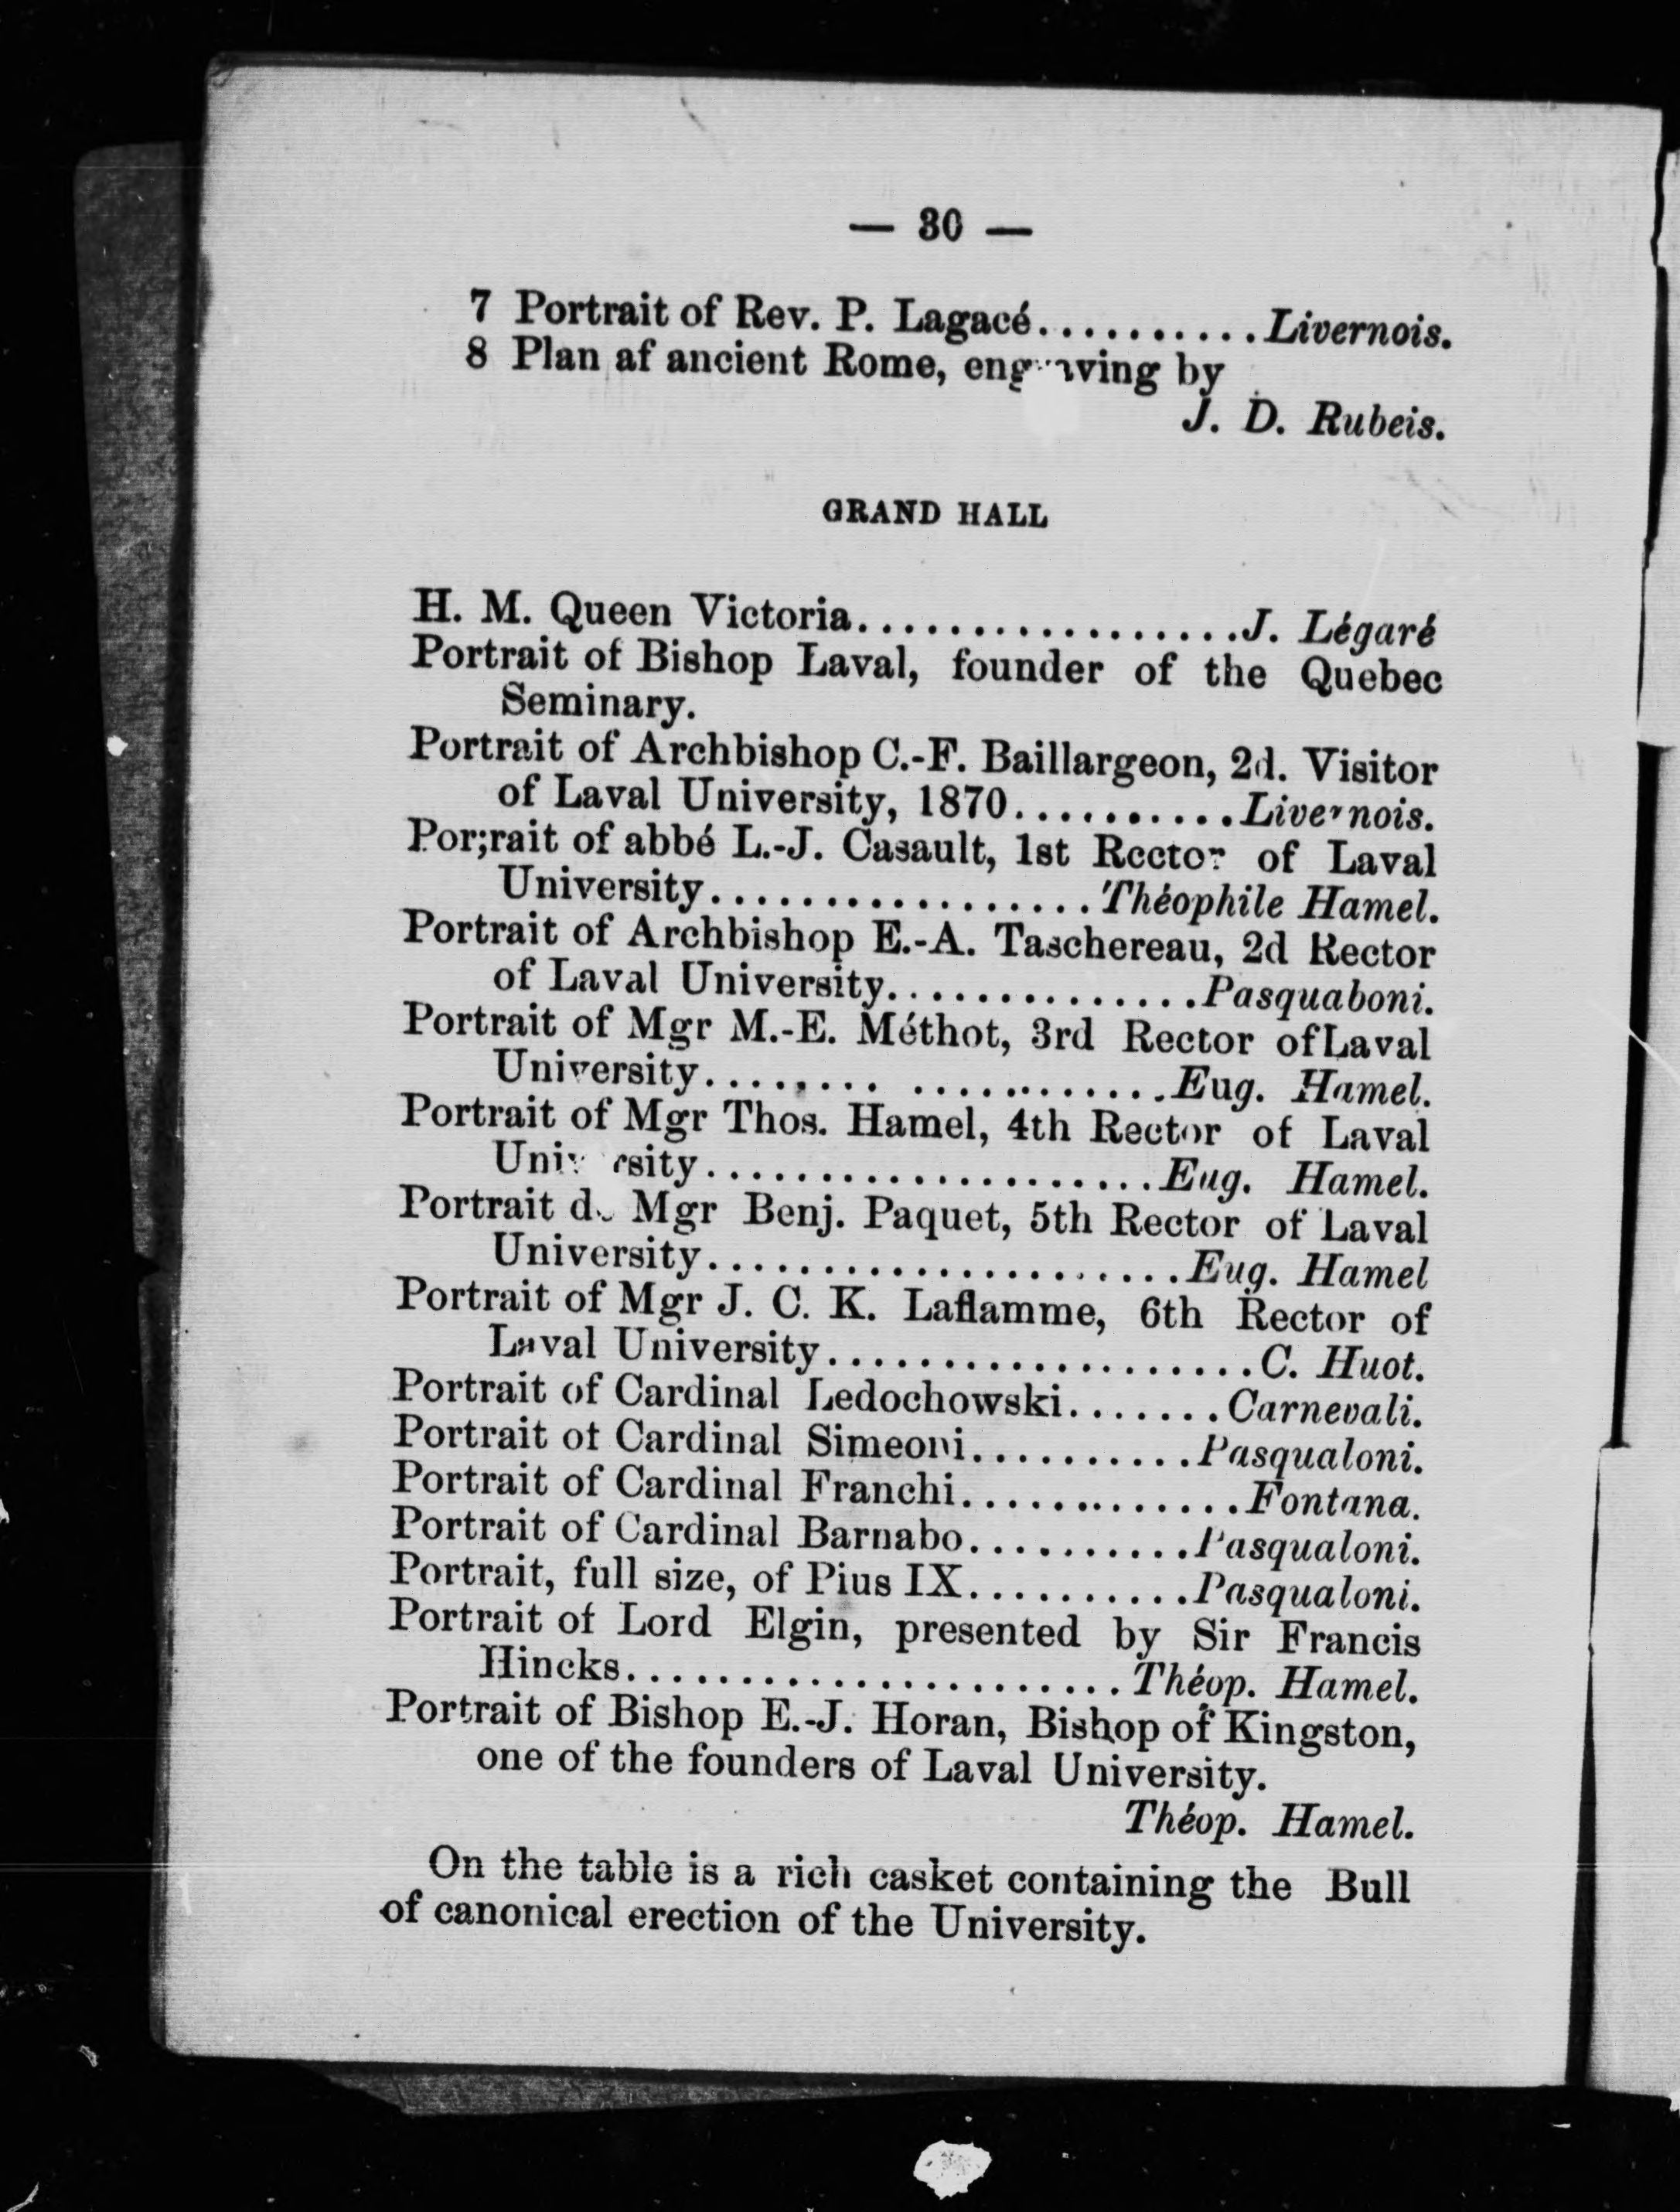 — 30 —
7 Portrait of Rev. P. Lagacé..........Livernois.
8 Plan af ancient Rome, engraving by
J. D. Rubeis.
GRAND HALL
H. M. Queen Victoria.................J. Légaré
Portrait of Bishop Laval, founder of the Quebec
Seminary.
Portrait of Archbishop C.-F. Baillargeon, 2d. Visitor
of Laval University, 1870..........Livernois.
Por;rait of abbé L.-J. Casault, 1st Rector of Laval
University.................Théophile Hamel.
Portrait of Archbishop E.-A. Taschereau, 2d Rector
of Laval University..............Pasquaboni.
Portrait of Mgr M.-E. Méthot, 3rd Rector ofLaval
University........ ............Eug. Hamel.
Portrait of Mgr Thos. Hamel, 4th Rector of Laval
University....................Eug. Hamel.
Portrait de Mgr Benj. Paquet, 5th Rector of Laval
University.....................Eug. Hamel
Portrait of Mgr J. C. K. Laflamme, 6th Rector of
Laval University...................C. Huot.
Portrait of Cardinal Ledochowski.......Carnevali.
Portrait of Cardinal Simeoni..........Pasqualoni.
Portrait of Cardinal Franchi.............Fontana.
Portrait of Cardinal Barnabo..........Pasqualoni.
Portrait, full size, of Pius IX..........Pasqualoni.
Portrait of Lord Elgin, presented by Sir Francis
Hincks......................Théop. Hamel.
Portrait of Bishop E.-J. Horan, Bishop of Kingston,
one of the founders of Laval University.
Théop. Hamel.
On the table is a rich casket containing the Bull
of canonical erection of the University.